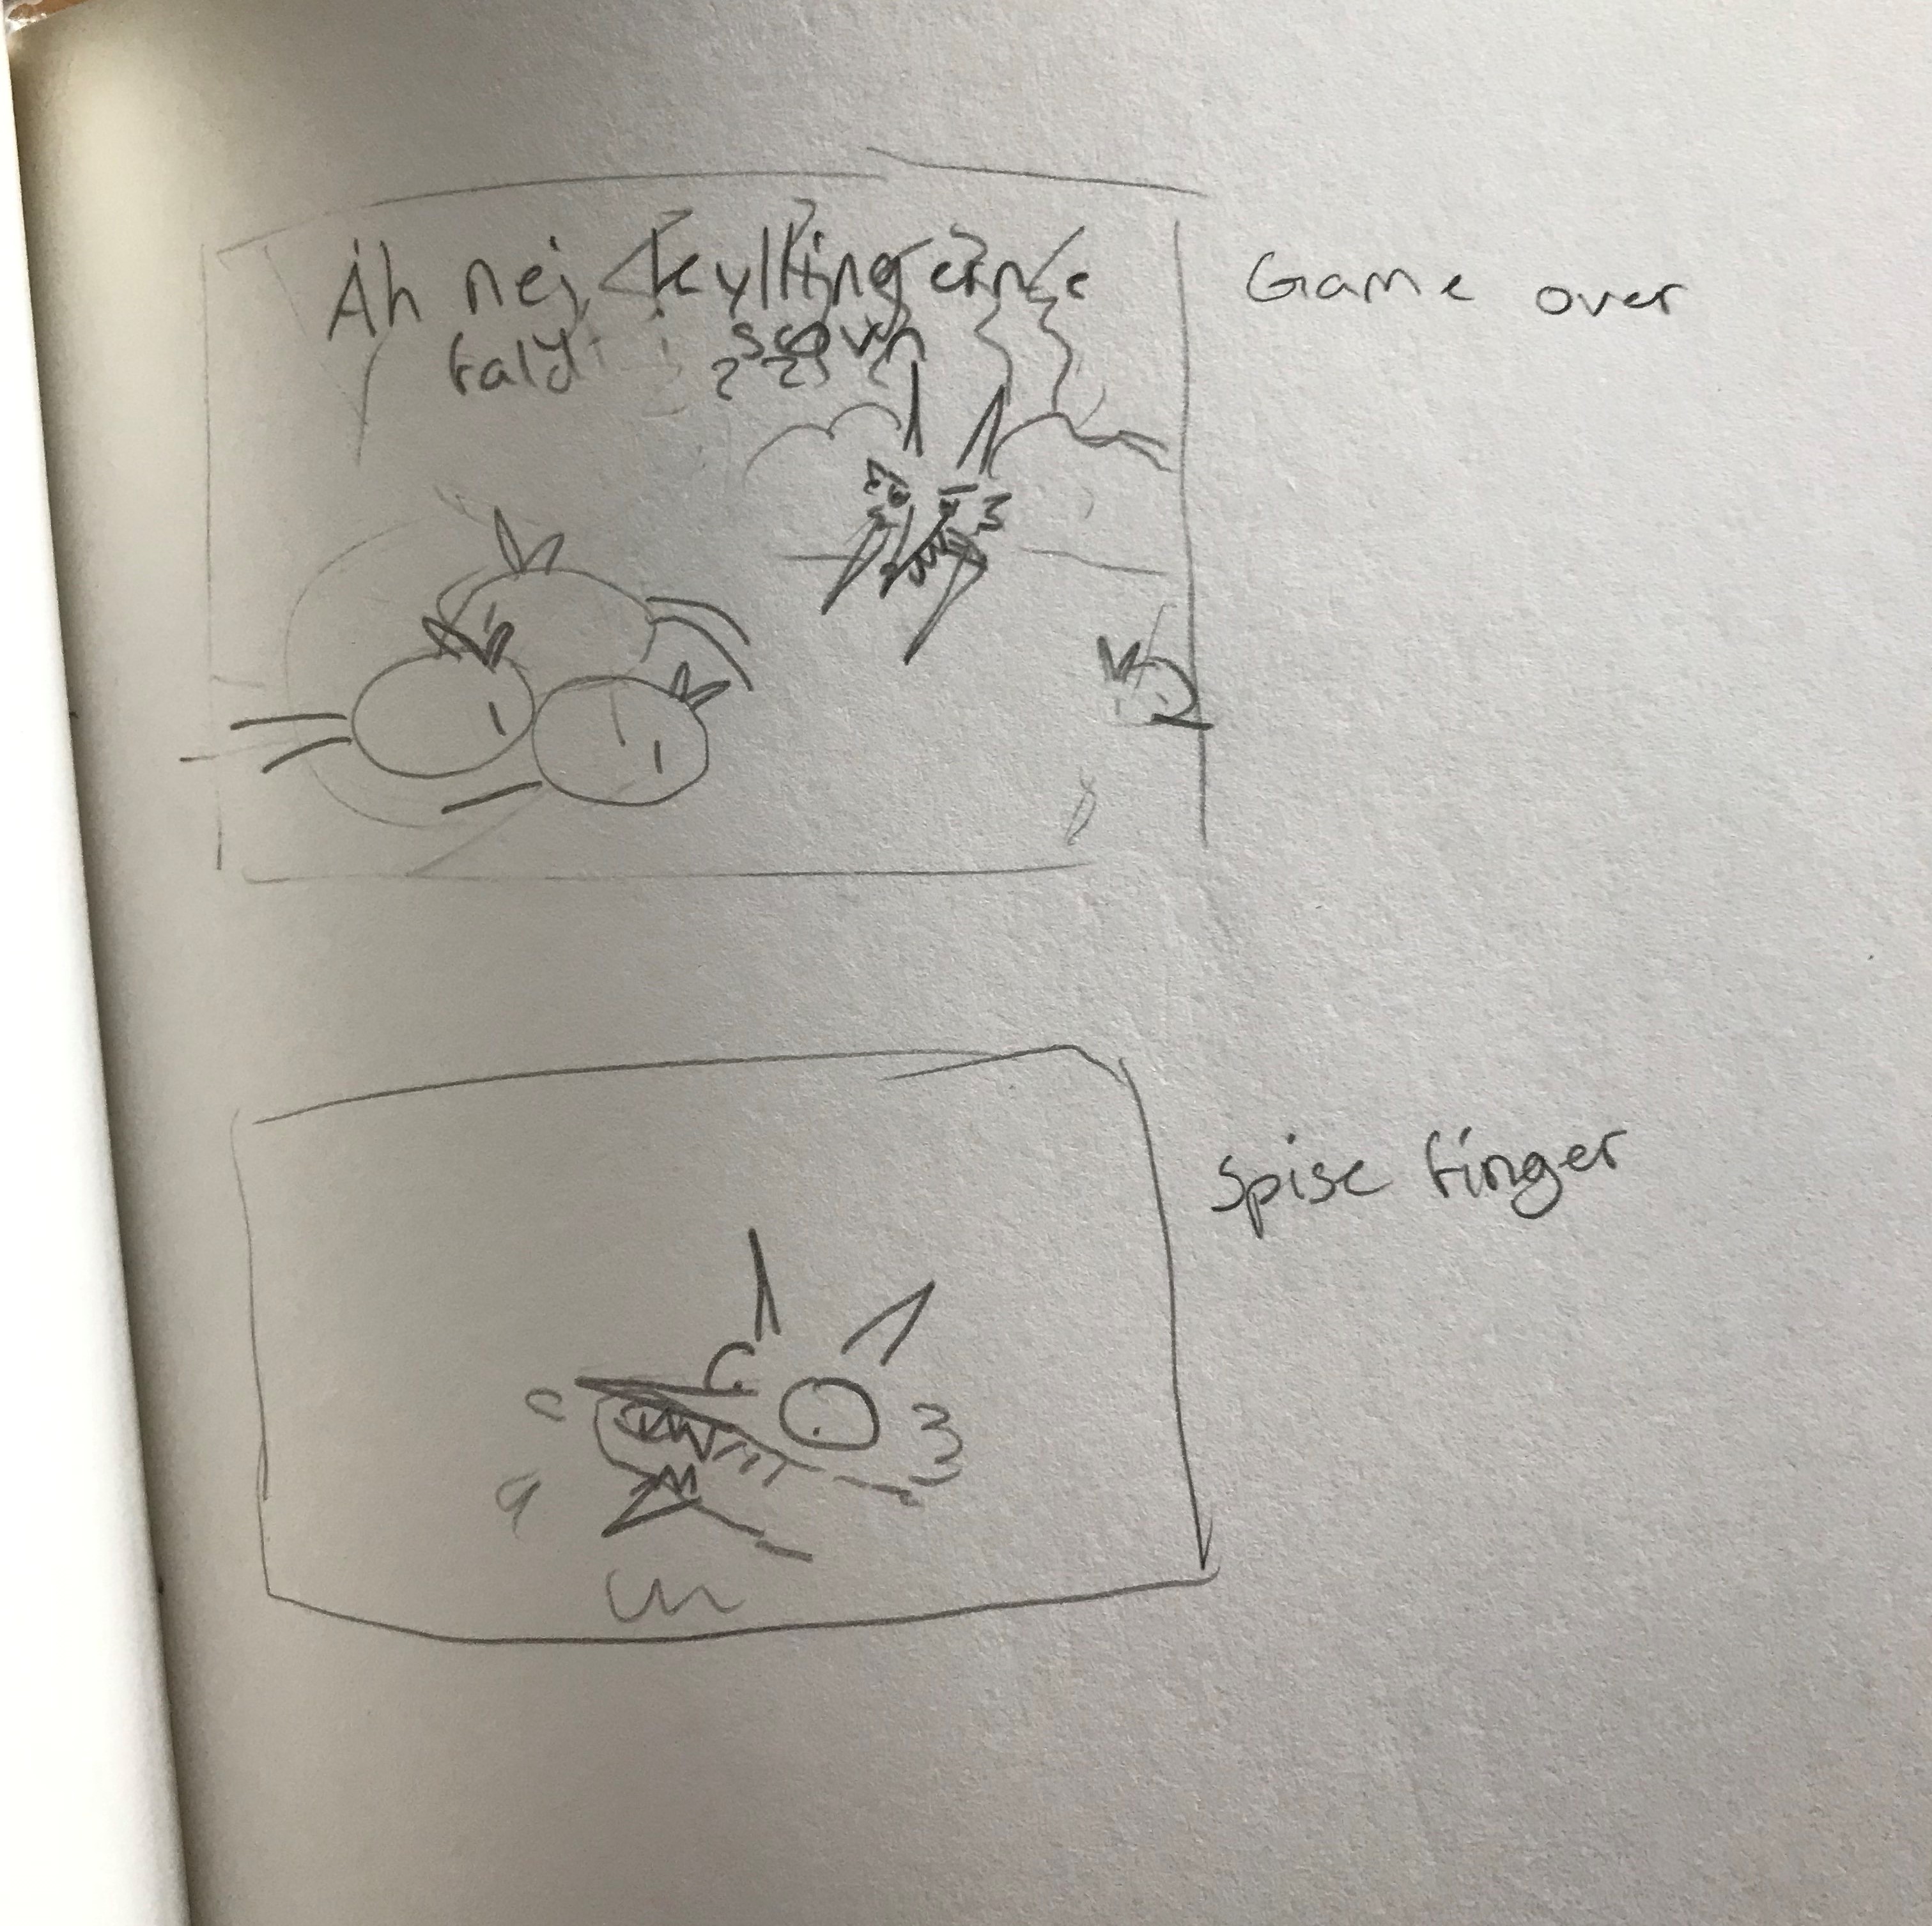 Åh nej, kyllingerne
faldt i søvn
Game over
Spise finger